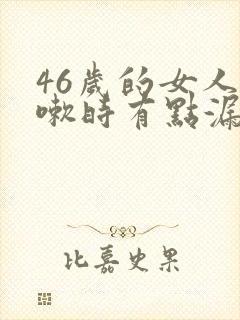 46歲的女人
嗽時有點漏
比嘉史果